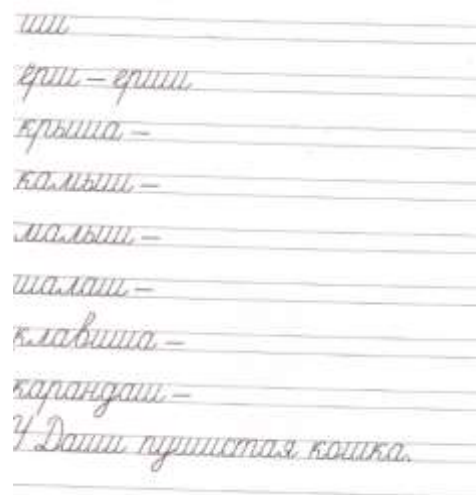 ши
ёрш – ерши
крыша –
камыш –
малыш –
шалаш –
клавиша –
карандаш –
У Даши пушистая кошка.